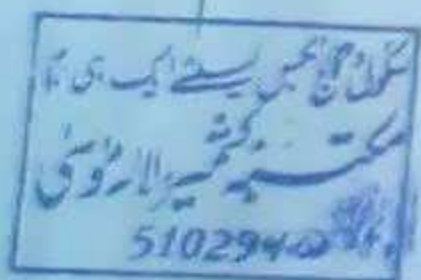 سکول و کالج بکس کیلئے ایک ہی نام
مکتبہ کشمیر لالہ موسیٰ
510294